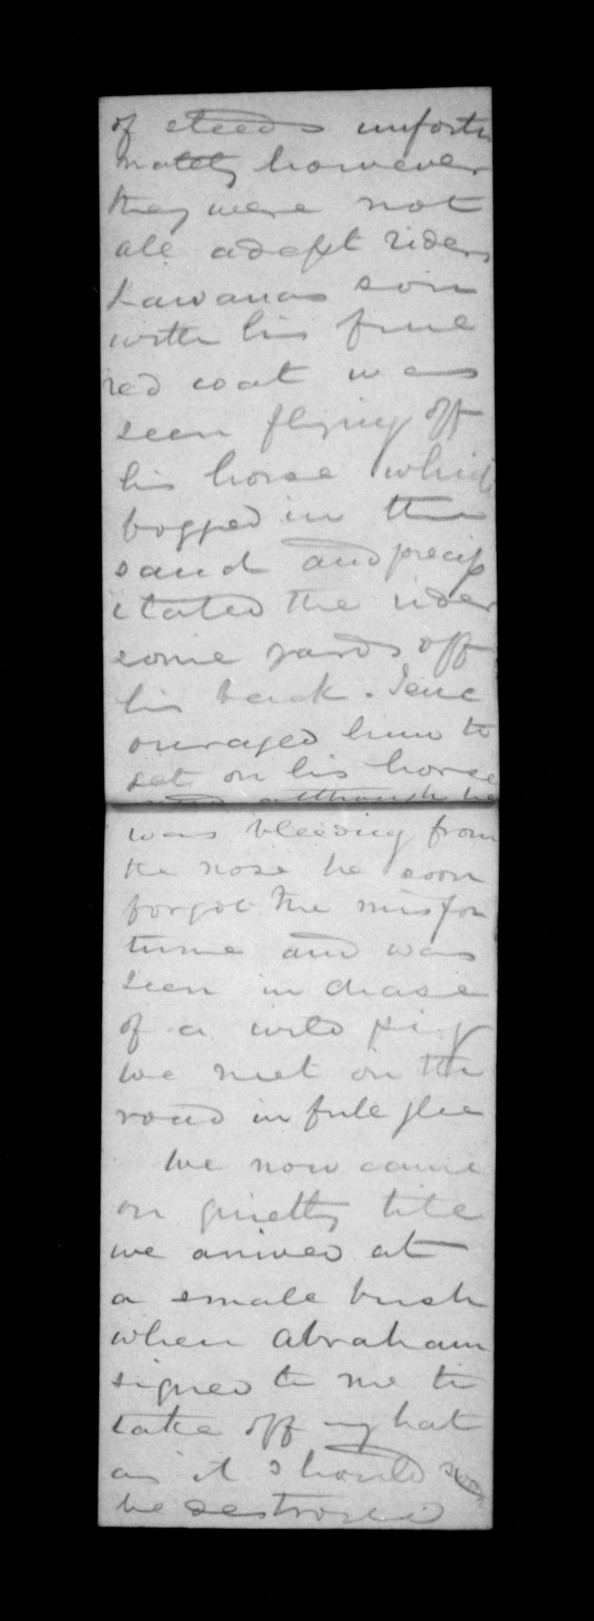 of steeds unfortu
nately however
they were not
all adept riders
Tawanas son
with his fine
red coat was
seen flying off
his horse which
bogged in the
sand and precip
itated the rider
some yards off
his back. I enc
ouraged him to
set on his horse
and although he
was bleeding from
the nose he soon
forgot the misfor
tune and was
seen in chase
of a wild pig
we met on the
road in full glee
We now came
on quietly till
we arrived at
a small bush
when Abraham
signed to me to
take off my hat
as it should
be destroyed